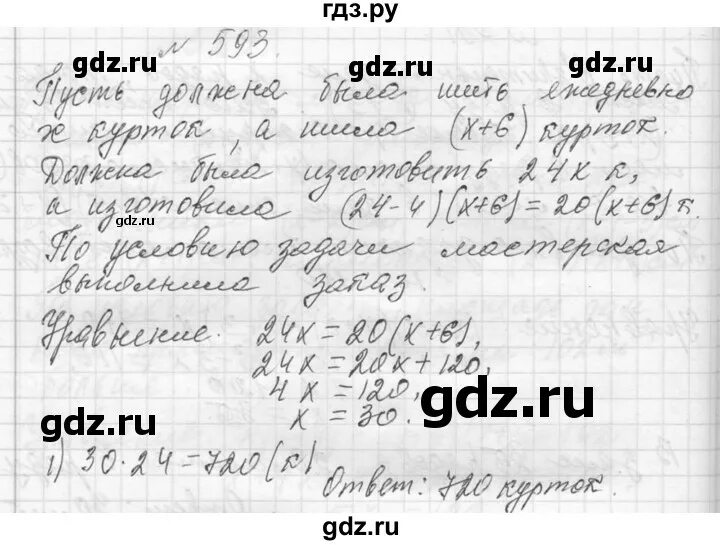 гдз.ру
№ 593.
Пусть должна была шить ежедневно
x курток, а шила (x+6) курток.
Должна была изготовить 24x к,
а изготовила (24-4)(x+6)=20(x+6) к.
По условию задачи мастерская
выполнила заказ.
Уравнение. 24x=20(x+6),
24x=20x+120,
4x=120,
x=30.
1) 30·24=720(к)
Ответ: 720 курток.
gdz.ru
gdz.ru
gdz.ru
gdz.ru
gdz.ru
gdz.ru
gdz.ru
gdz.ru
gdz.ru